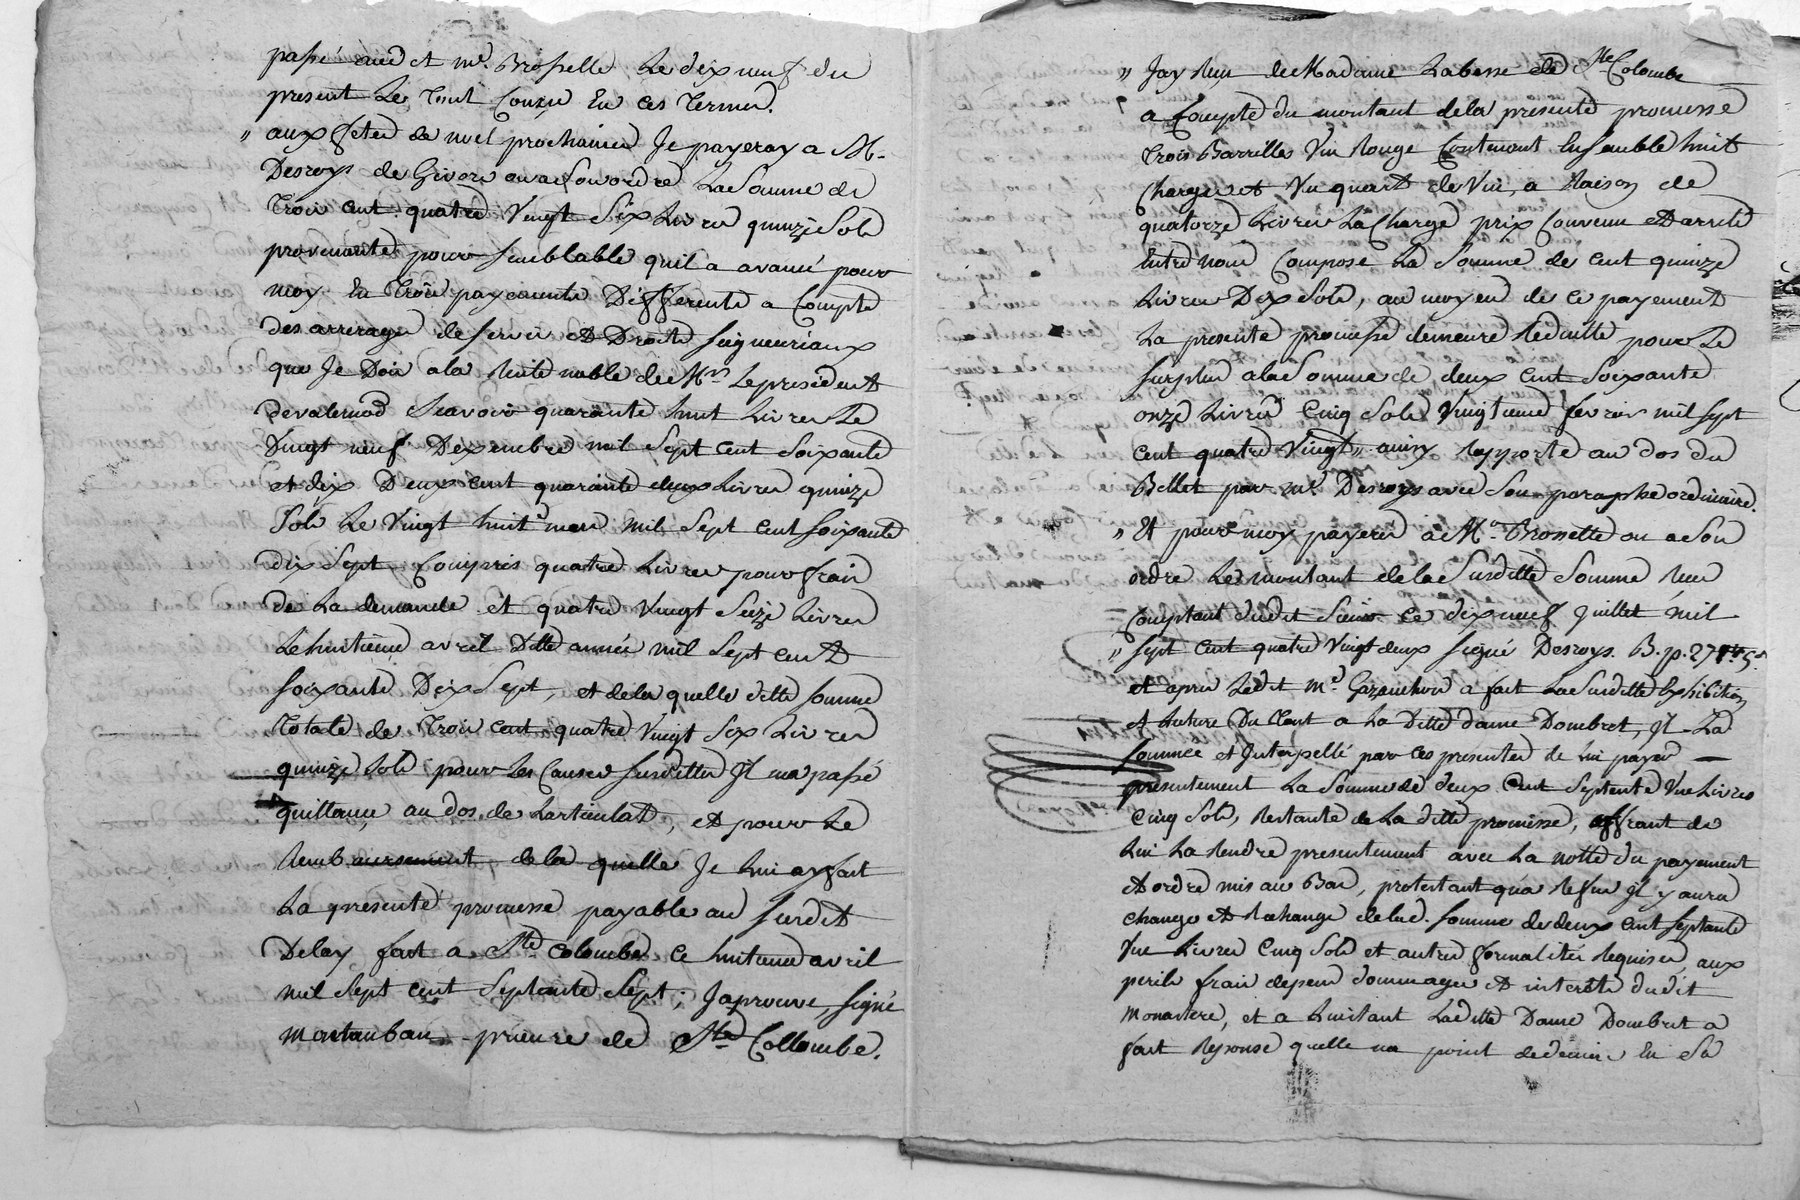 passé audit Mr. Brossette Le dix neuf du
present Le Tout Conçu En ces Termes.
" aux fetes de noel prochaines Je payeray a M.
Desroys de Givors ou a Son ordre La Somme de
Trois cent quatre Vingt Six Livres quinze Sols
provenante pour semblable quil a avancé pour
moy En Trois payements Differents a Compte
des arrerages de servis et Droits seigneuriaux
que Je Dois a la Rente noble de Mr. Le president
devalernod Scavoir quarante huit Livres Le
Vingt neuf Dexembre mil Sept cent Soixante
et dix Deux cent quarante deux Livres quinze
Sols Le Vingt huit mars mil Sept cent soixante
dix Sept Compris quatre Livres pour frais
de La demande et quatre Vingt Seize Livres
Le huitieme avril Ditte année mil Sept cent
soixante Dix Sept, et de la quelle ditte somme
Totale de Trois cent quatre Vingt Six Livres
quinze Sols pour Les Causes susdittes Jl ma passé
quittance au dos de Larticulat, et pour Le
Remb aursement de la quelle Je Lui ay fait
La presente promesse payable au susdit
Delay fait a Ste. Colombe ce huitieme avril
mil Sept cent Septante Sept ; Japrouve, signé
Montauban prieure de Ste Collombe.
" Jay Reçu de Madame Labesse de Ste Colombe
a Compte du montant dela presente promesse
Trois Barrilles Vin Rouge Contenant Ensemble huit
Charges et Vn quart de Vin, a Raison de
quatorze Livres La Charge prix Convenu et arreté
Entre nous Compose La Somme de cent quinze
Livres Dix Sols, au moyen de ce payement
La presente promesse demeure Reduitte pour Le
surplus a la Somme de deux cent Soixante
onze Livres Cinq Sols Vingtieme fevrier mil sept
cent quatre Vingt, ainsy Rapporté au dos du
Billet par Mr. Desroys avec Son paraphe ordinaire.
" Et pour moy payeres a Mr. Brossette ou a Son
ordre Le montant de la Susditte Somme Reçu
Comptant dudit Sieur ce dix neuf Juillet mil
" sept cent quatre Vingt deux signé Desroys. B. p. 271tt 5s
et apres Ledit Mr. Gazanchon a fait La Susditte Exhibition
et Lecture Du Tout a La Ditte dame Dombret, Jl La
sommée et Interpellé par ces presentes de lui payer
presentement La Somme de deux Cent Septente Vne Livres
Cinq Sols, Restante de La ditte promesse, offrant de
Lui La Rendre presentement avec La notte du payement
et ordre mis au Bas, protestant qua Refus Jl y aura
change et Rechange de lad. somme de deux cent septante
Vne Livres Cinq Sols et autres formalités Requises aux
perils frais depens dommages et interets dudit
Monastere, et a Linstant Laditte Dame Dombret a
fait Reponse quelle na point de denier En Sa